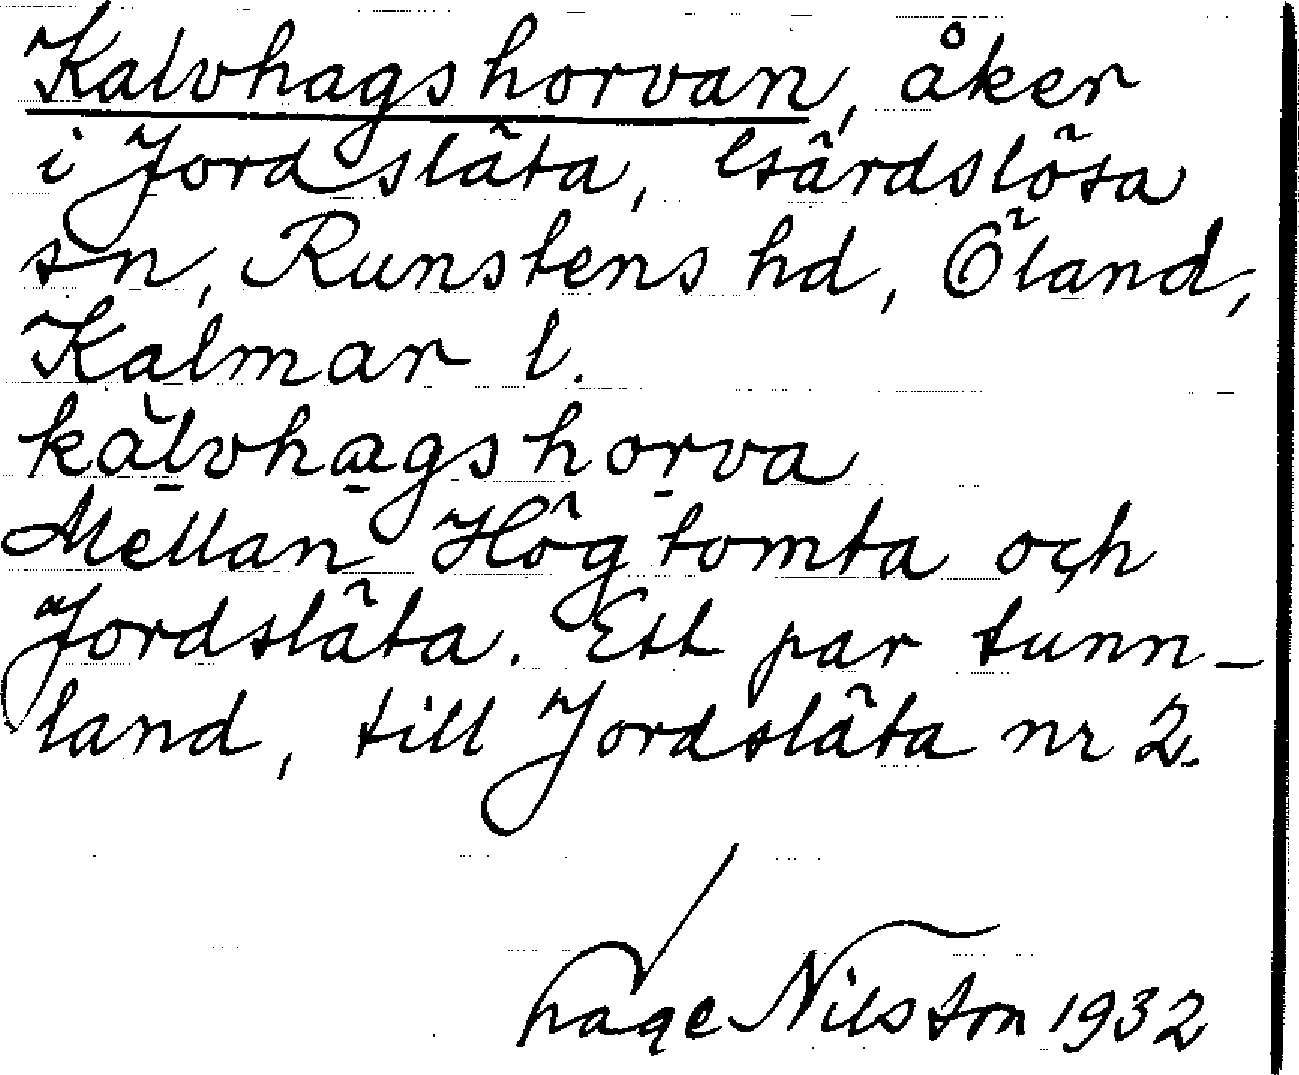 Kalvhagshorvan, åker
i Jordsläta, Gärdslösa
sn, Runstens hd, Öland,
Kalmar l.
kàlvhagshorva
Mellan Högtomta och
Jordsläta. Ett par tunn-
land, till Jordsläta nr 2.
Hage Nilsson 1932